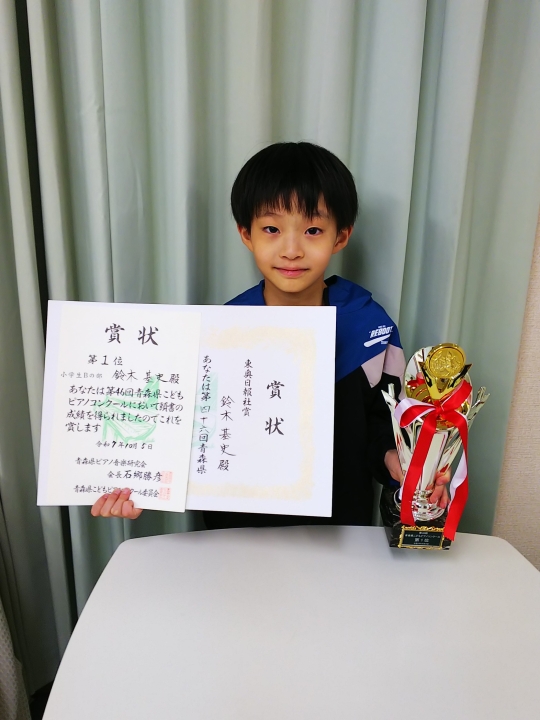 賞状
第1位
小学生Bの部 鈴木基史殿
あなたは第46回青森県こども
ピアノコンクールにおいて頭書の
成績を得られましたのでこれを
賞します
令和7年10月5日
青森県ピアノ音楽研究会
会長 石郷勝彦
青森県こどもピアノコンクール委員会
賞状
東奥日報社賞
鈴木基史殿
あなたは第四十六回青森県
REBOOT
第1位